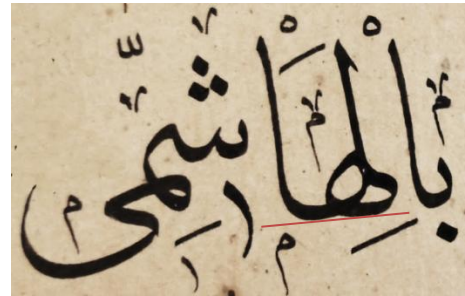 بِالْهَاشِمِيِّ